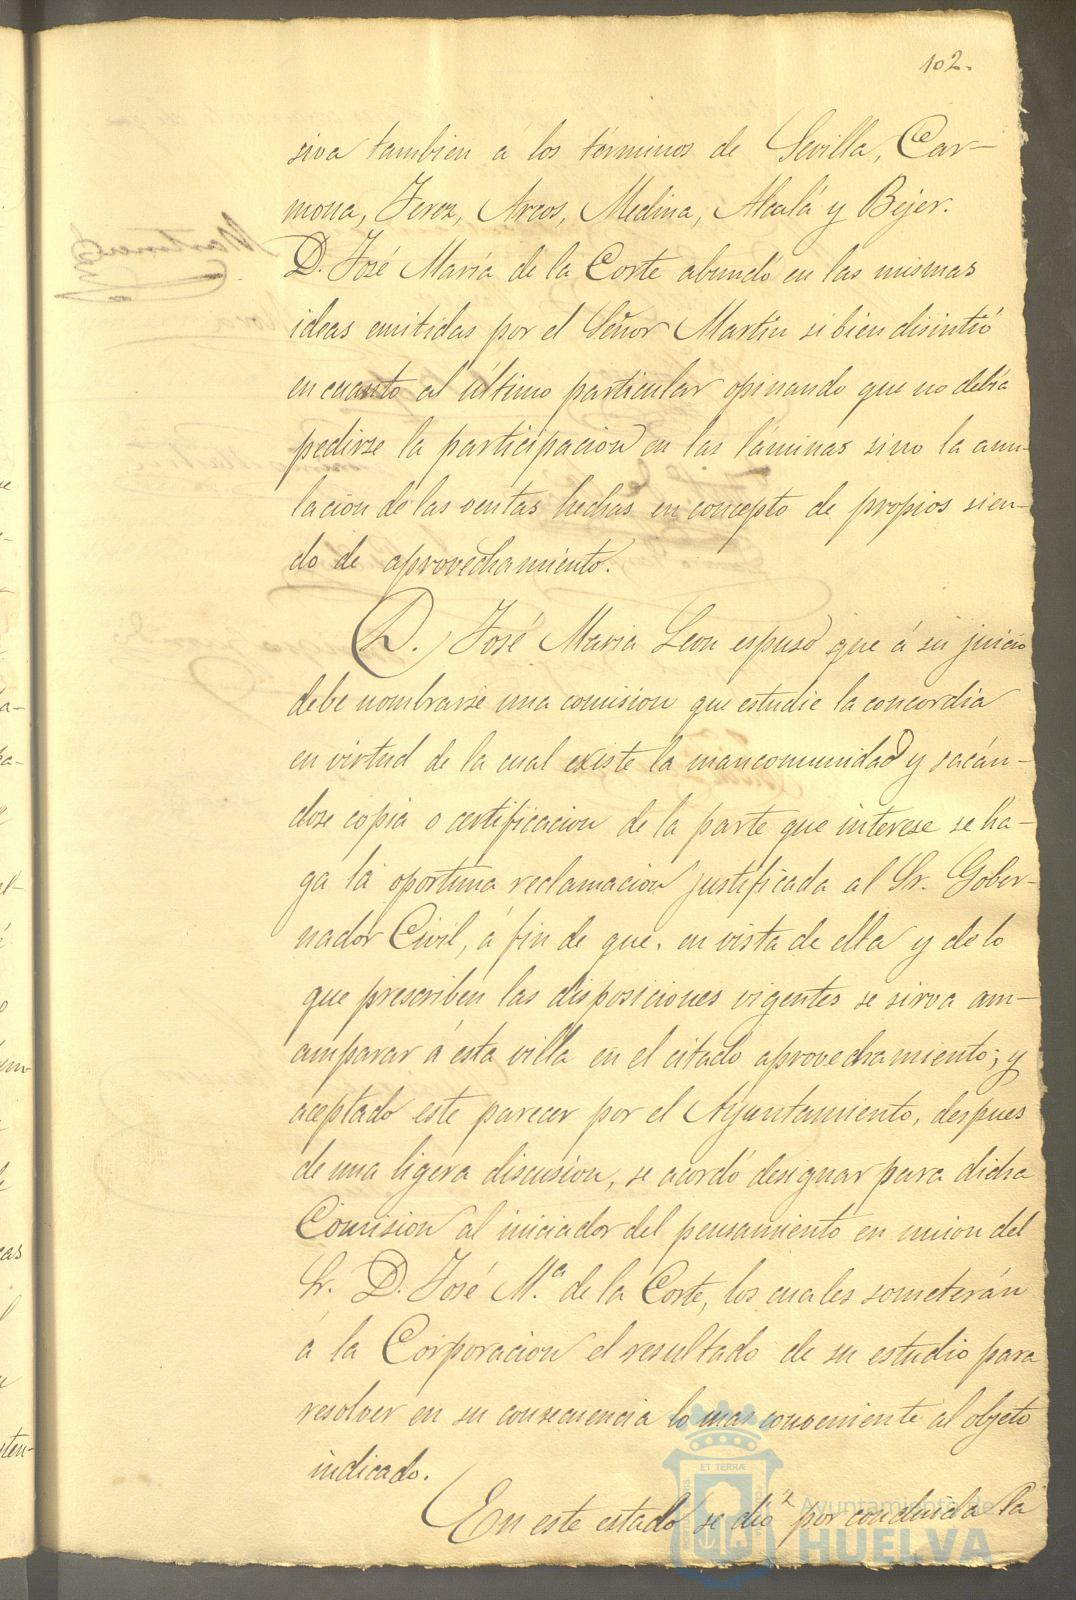 102.
siva tambien á los términos de Sevilla, Car-
mona, Jerez, Arcos, Medina, Alcalá y Béjer.
D. José María de la Corte abundó en las mismas
ideas emitidas por el Señor Martín si bien disintió
en cuanto al último particular opinando que no debía
pedirse la participacion en las láminas sino la anu-
lacion de las ventas hechas en concepto de propios sien-
do de aprovechamiento.
D. José Maria Leon espuso que á su juicio
debe nombrarse una comision que estudie la concordia
en virtud de la cual existe la mancomunidad y sacán-
dose copia o certificacion de la parte que interese se ha-
ga la oportuna reclamacion justificada al Sr. Gober-
nador Civil, á fin de que, en vista de ella y de lo
que prescriben las disposiciones vigentes se sirva am-
amparar á esta villa en el citado aprovechamiento; y
aceptado este parecer por el Ayuntamiento, despues
de una ligera discusion, se acordó designar para dicha
Comision al iniciador del pensamiento en union del
Sr. D. José M.ª de la Corte, los cuales someterán
á la Corporacion el resultado de su estudio para
resolver en su consecuencia lo mas conveniente al objeto
indicado.
En este estado se dió por concluida la
ET TERRÆ
Ayuntamiento de
HUELVA